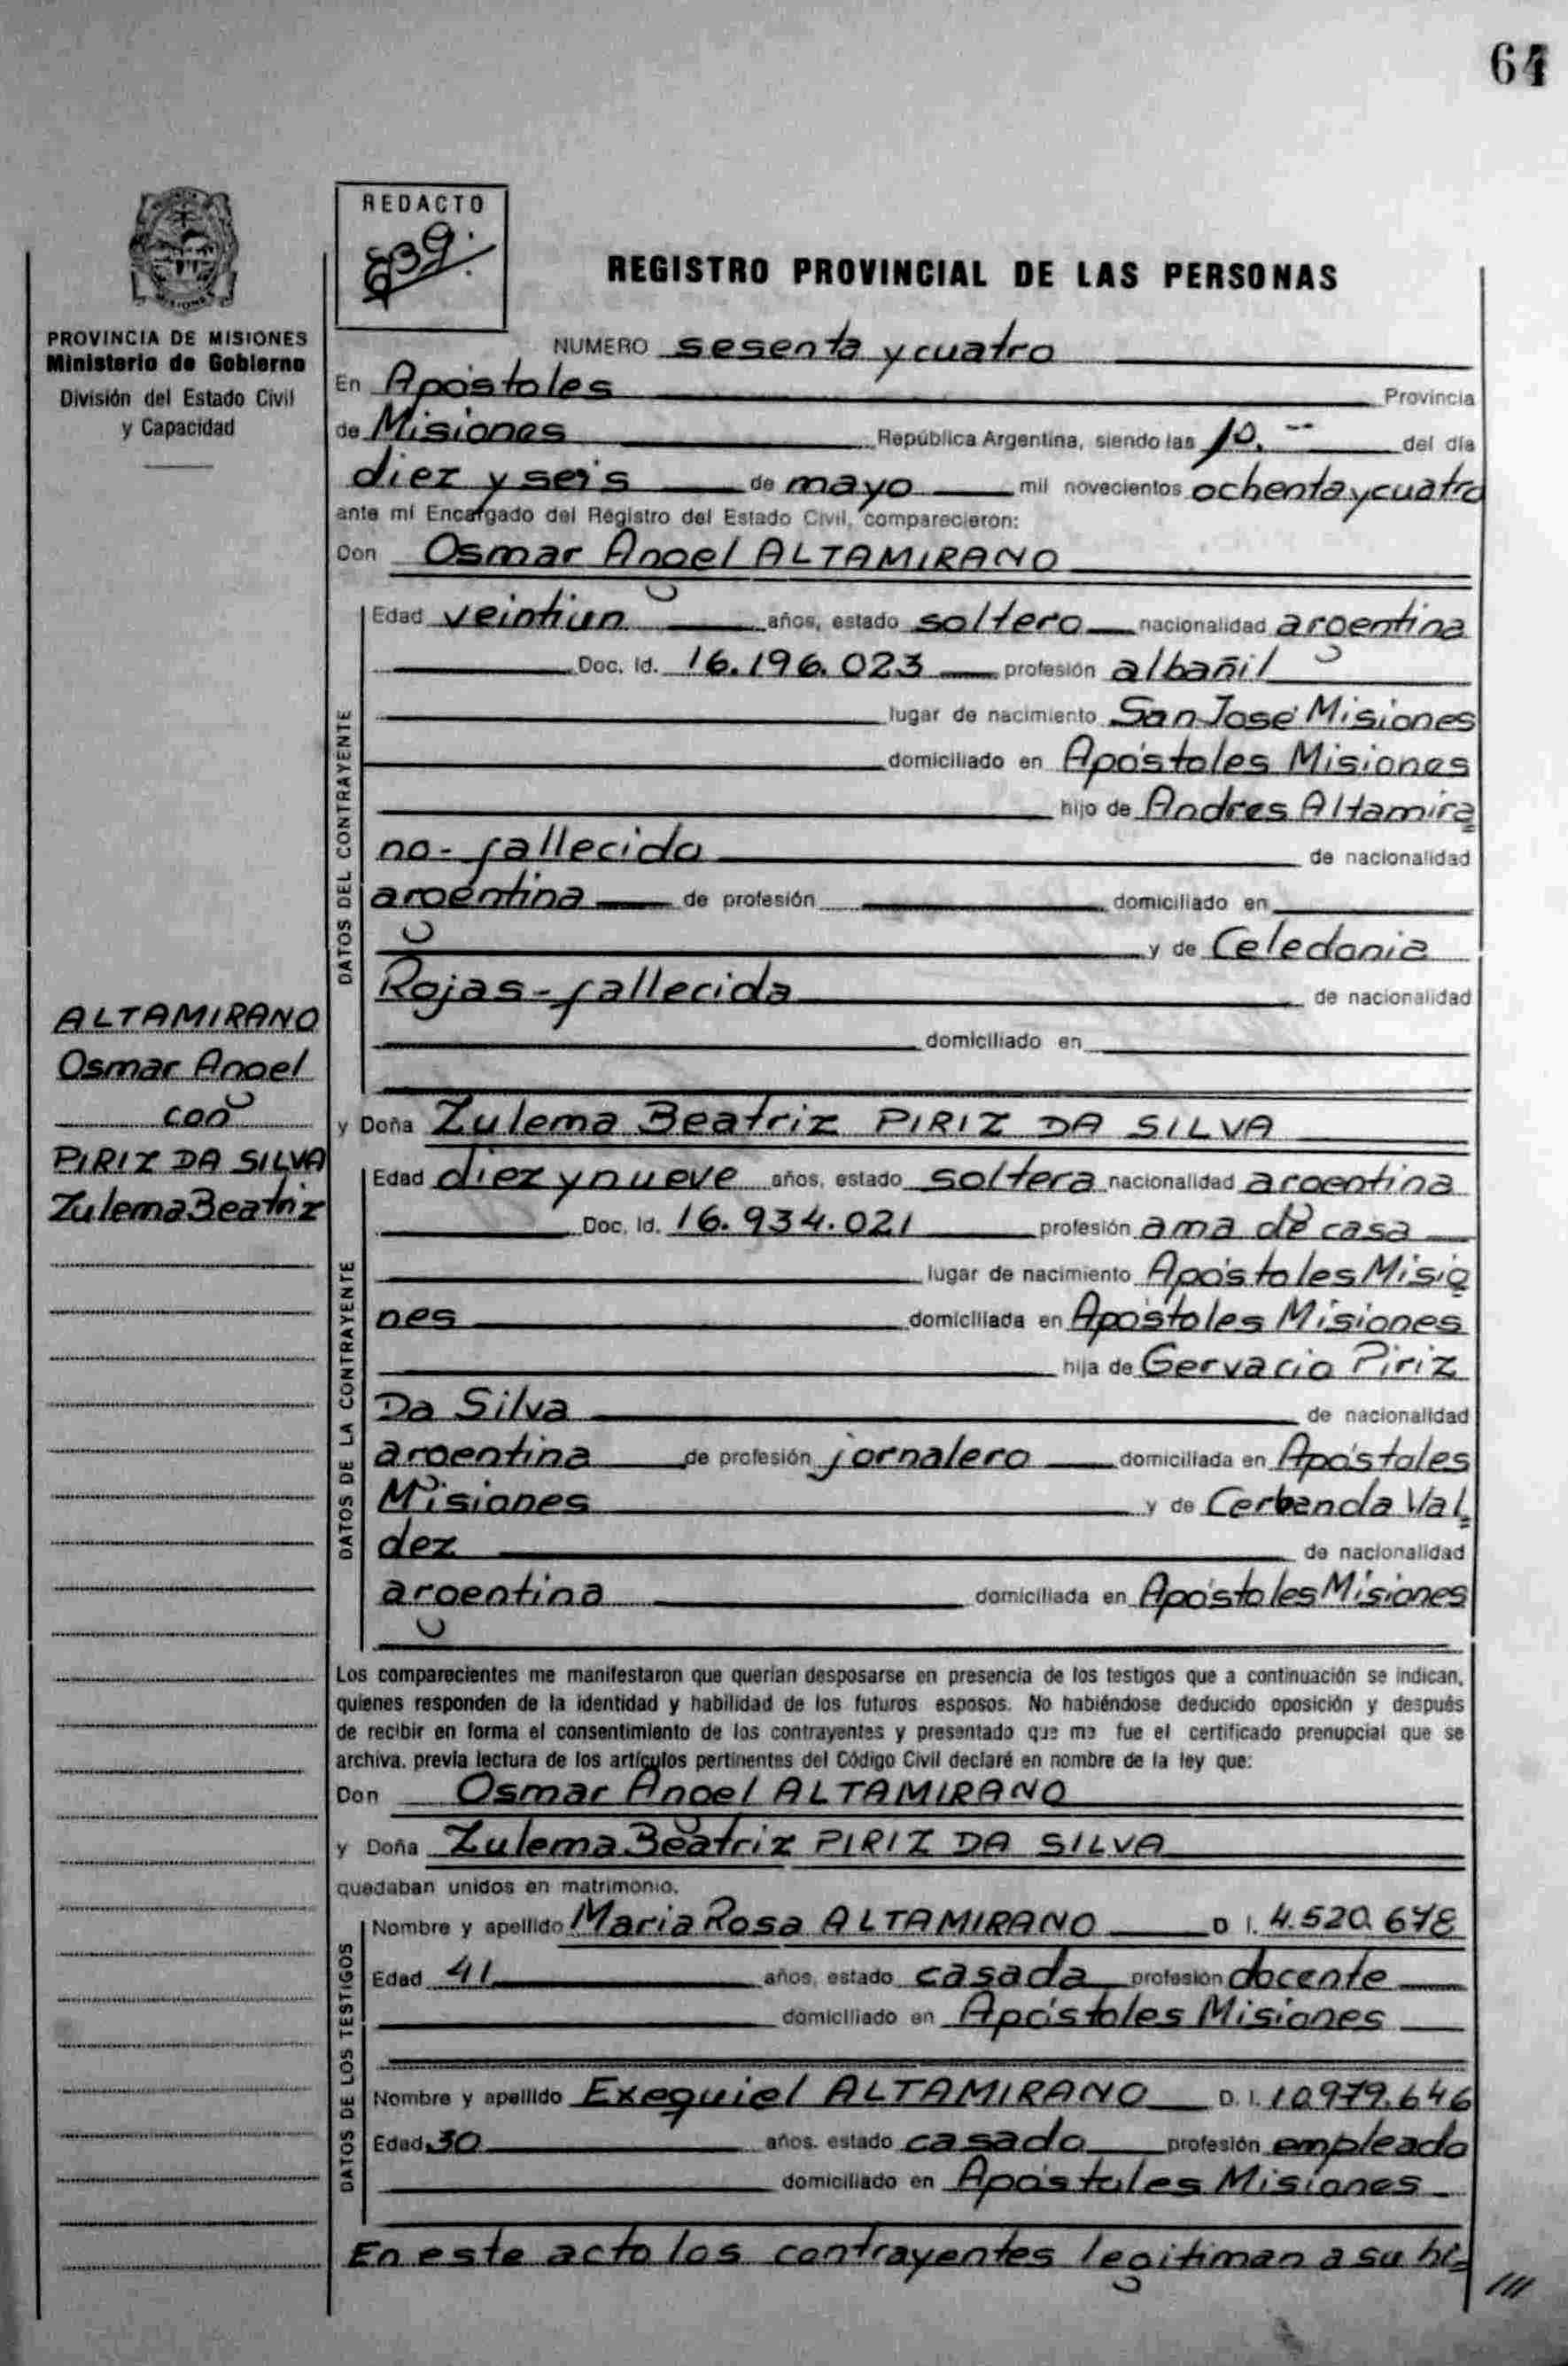 64
REDACTO
839.
REGISTRO PROVINCIAL DE LAS PERSONAS
PROVINCIA DE MISIONES
Ministerio de Gobierno
División del Estado Civil
y Capacidad
NUMERO sesenta y cuatro
En Apóstoles Provincia
de Misiones República Argentina, siendo las 10.-- del día
diez y seis de mayo mil novecientos ochenta y cuatro
ante mí Encargado del Registro del Estado Civil, comparecieron:
Don Osmar Angel ALTAMIRANO
DATOS DEL CONTRAYENTE
Edad veintiun años, estado soltero nacionalidad argentina
Doc. Id. 16.196.023 profesión albañil
lugar de nacimiento San José Misiones
domiciliado en Apóstoles Misiones
hijo de Andres Altamira
no - fallecido de nacionalidad
argentina de profesión domiciliado en
y de Celedonia
Rojas - fallecida de nacionalidad
domiciliado en
ALTAMIRANO
Osmar Angel
con
PIRIZ DA SILVA
Zulema Beatriz
y Doña Zulema Beatriz PIRIZ DA SILVA
DATOS DE LA CONTRAYENTE
Edad diez y nueve años, estado soltera nacionalidad argentina
Doc. Id. 16.934.021 profesión ama de casa
lugar de nacimiento Apóstoles Misio
nes domiciliada en Apóstoles Misiones
hija de Gervacio Piriz
Da Silva de nacionalidad
argentina de profesión jornalero domiciliada en Apóstoles
Misiones y de Cerbanda Val
dez de nacionalidad
argentina domiciliada en Apóstoles Misiones
Los comparecientes me manifestaron que querían desposarse en presencia de los testigos que a continuación se indican,
quienes responden de la identidad y habilidad de los futuros esposos. No habiéndose deducido oposición y después
de recibir en forma el consentimiento de los contrayentes y presentado que me fue el certificado prenupcial que se
archiva, previa lectura de los artículos pertinentes del Código Civil declaré en nombre de la ley que:
Don Osmar Angel ALTAMIRANO
y Doña Zulema Beatriz PIRIZ DA SILVA
quedaban unidos en matrimonio.
DATOS DE LOS TESTIGOS
Nombre y apellido Maria Rosa ALTAMIRANO D I. 4.520.678
Edad 41 años, estado casada profesión docente
domiciliado en Apóstoles Misiones
Nombre y apellido Exequiel ALTAMIRANO D. I. 10.979.646
Edad 30 años. estado casado profesión empleado
domiciliado en Apóstoles Misiones
En este acto los contrayentes legitiman a su hi-
///